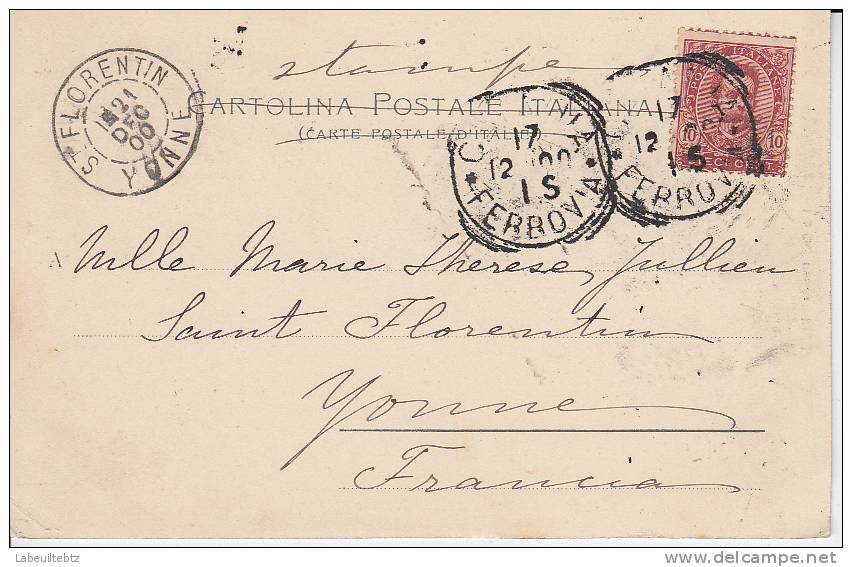 stampe
CARTOLINA POSTALE ITALIANA
(CARTE POSTALE D'ITALIE)
ST FLORENTIN
21
DEC
00
YONNE
17
12 00
1 S
FERROVIA
17
12
S
FERROVIA
POSTE ITALIANE
10
A Mlle Marie Therese Jullien
Saint Florentin
Yonne
Francia
Labeuiltebtz
www.delcampe.net